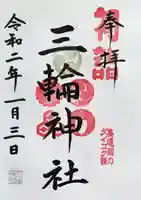 奉拝
初詣
三輪神社
令和二年一月三日